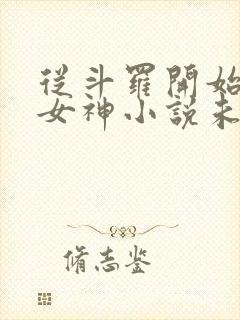 從斗羅開始
女神小說未
脩志鉴